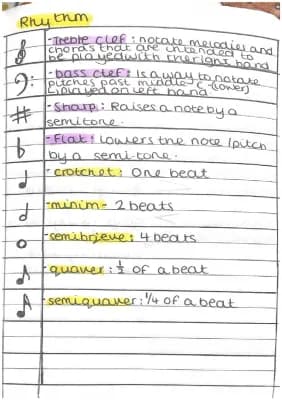 Rhythm
- Treble clef: notate melodies and
chords that are intended to
be played with the right hand
- bass clef: Is a way to notate
pitches past middle C - (lower)
played on left hand
- Sharp: Raises a note by a
semitone.
- Flat: Lowers the note / pitch
by a semi-tone.
- crotchet: One beat
- minim - 2 beats
- semibrieve: 4 beats
- quaver: ½ of a beat
- semiquaver: ¼ of a beat